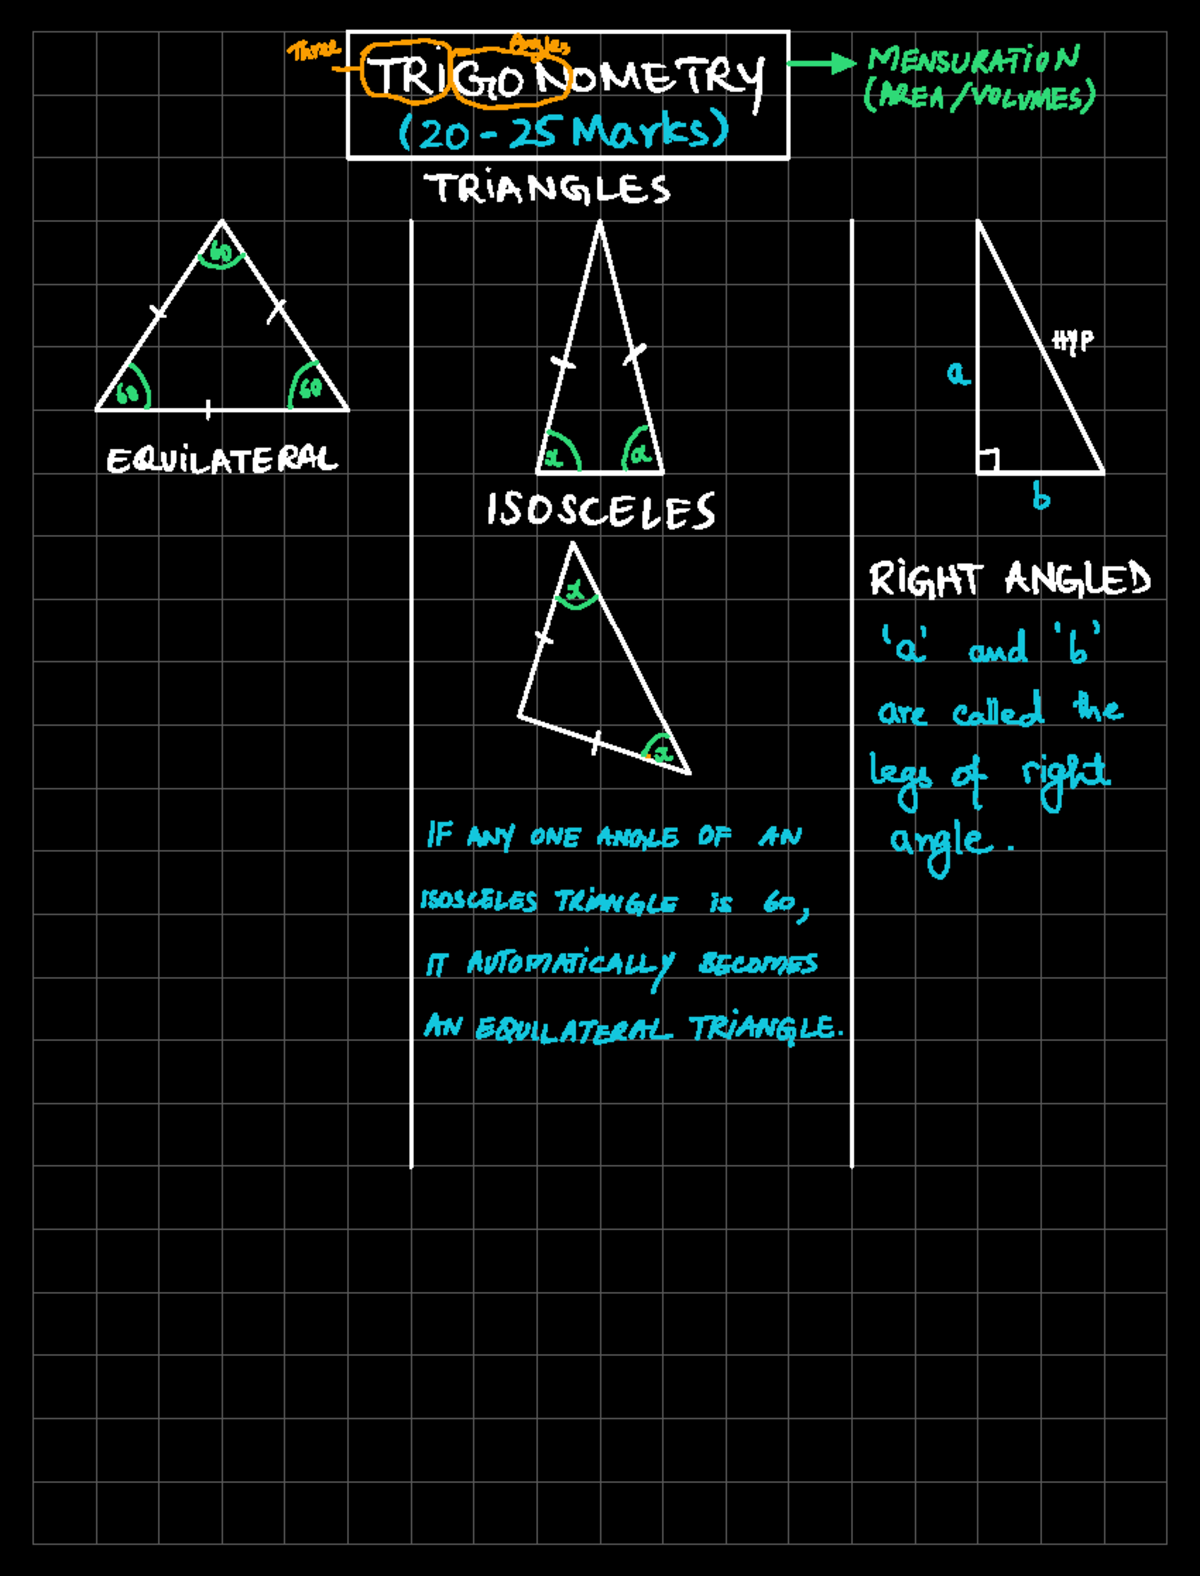 Three Angles
TRiGONOMETRY
(20-25 Marks)
MENSURATiON
(AREA/VOLUMES)
TRiANGLES
60
60
60
EQUiLATERAL
x
x
ISOSCELES
x
x
IF ANY ONE ANGLE OF AN
ISOSCELES TRiANGLE is 60,
IT AUTOMATiCALLY BECOMES
AN EQUILATERAL TRiANGLE.
a
HYP
b
RiGHT ANGLED
'a' and 'b'
are called the
legs of right
angle.